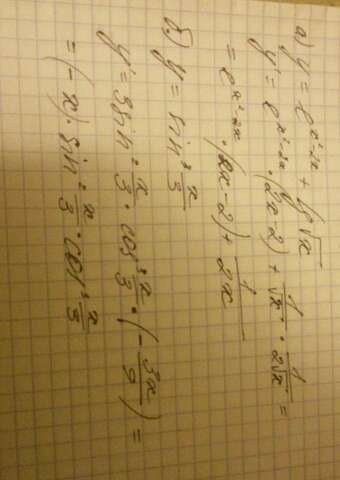 а) y = e^(x²-2x) + lg√x
y' = e^(x²-2x) · (2x-2) + 1/√x · 1/(2√x) =
= e^(x²-2x) · (2x-2) + 1/(2x)
б) y = sin³ x/3
y' = 3sin² x/3 · cos³ x/3 · (- 3x/9) =
= (-x) · sin² x/3 · cos³ x/3